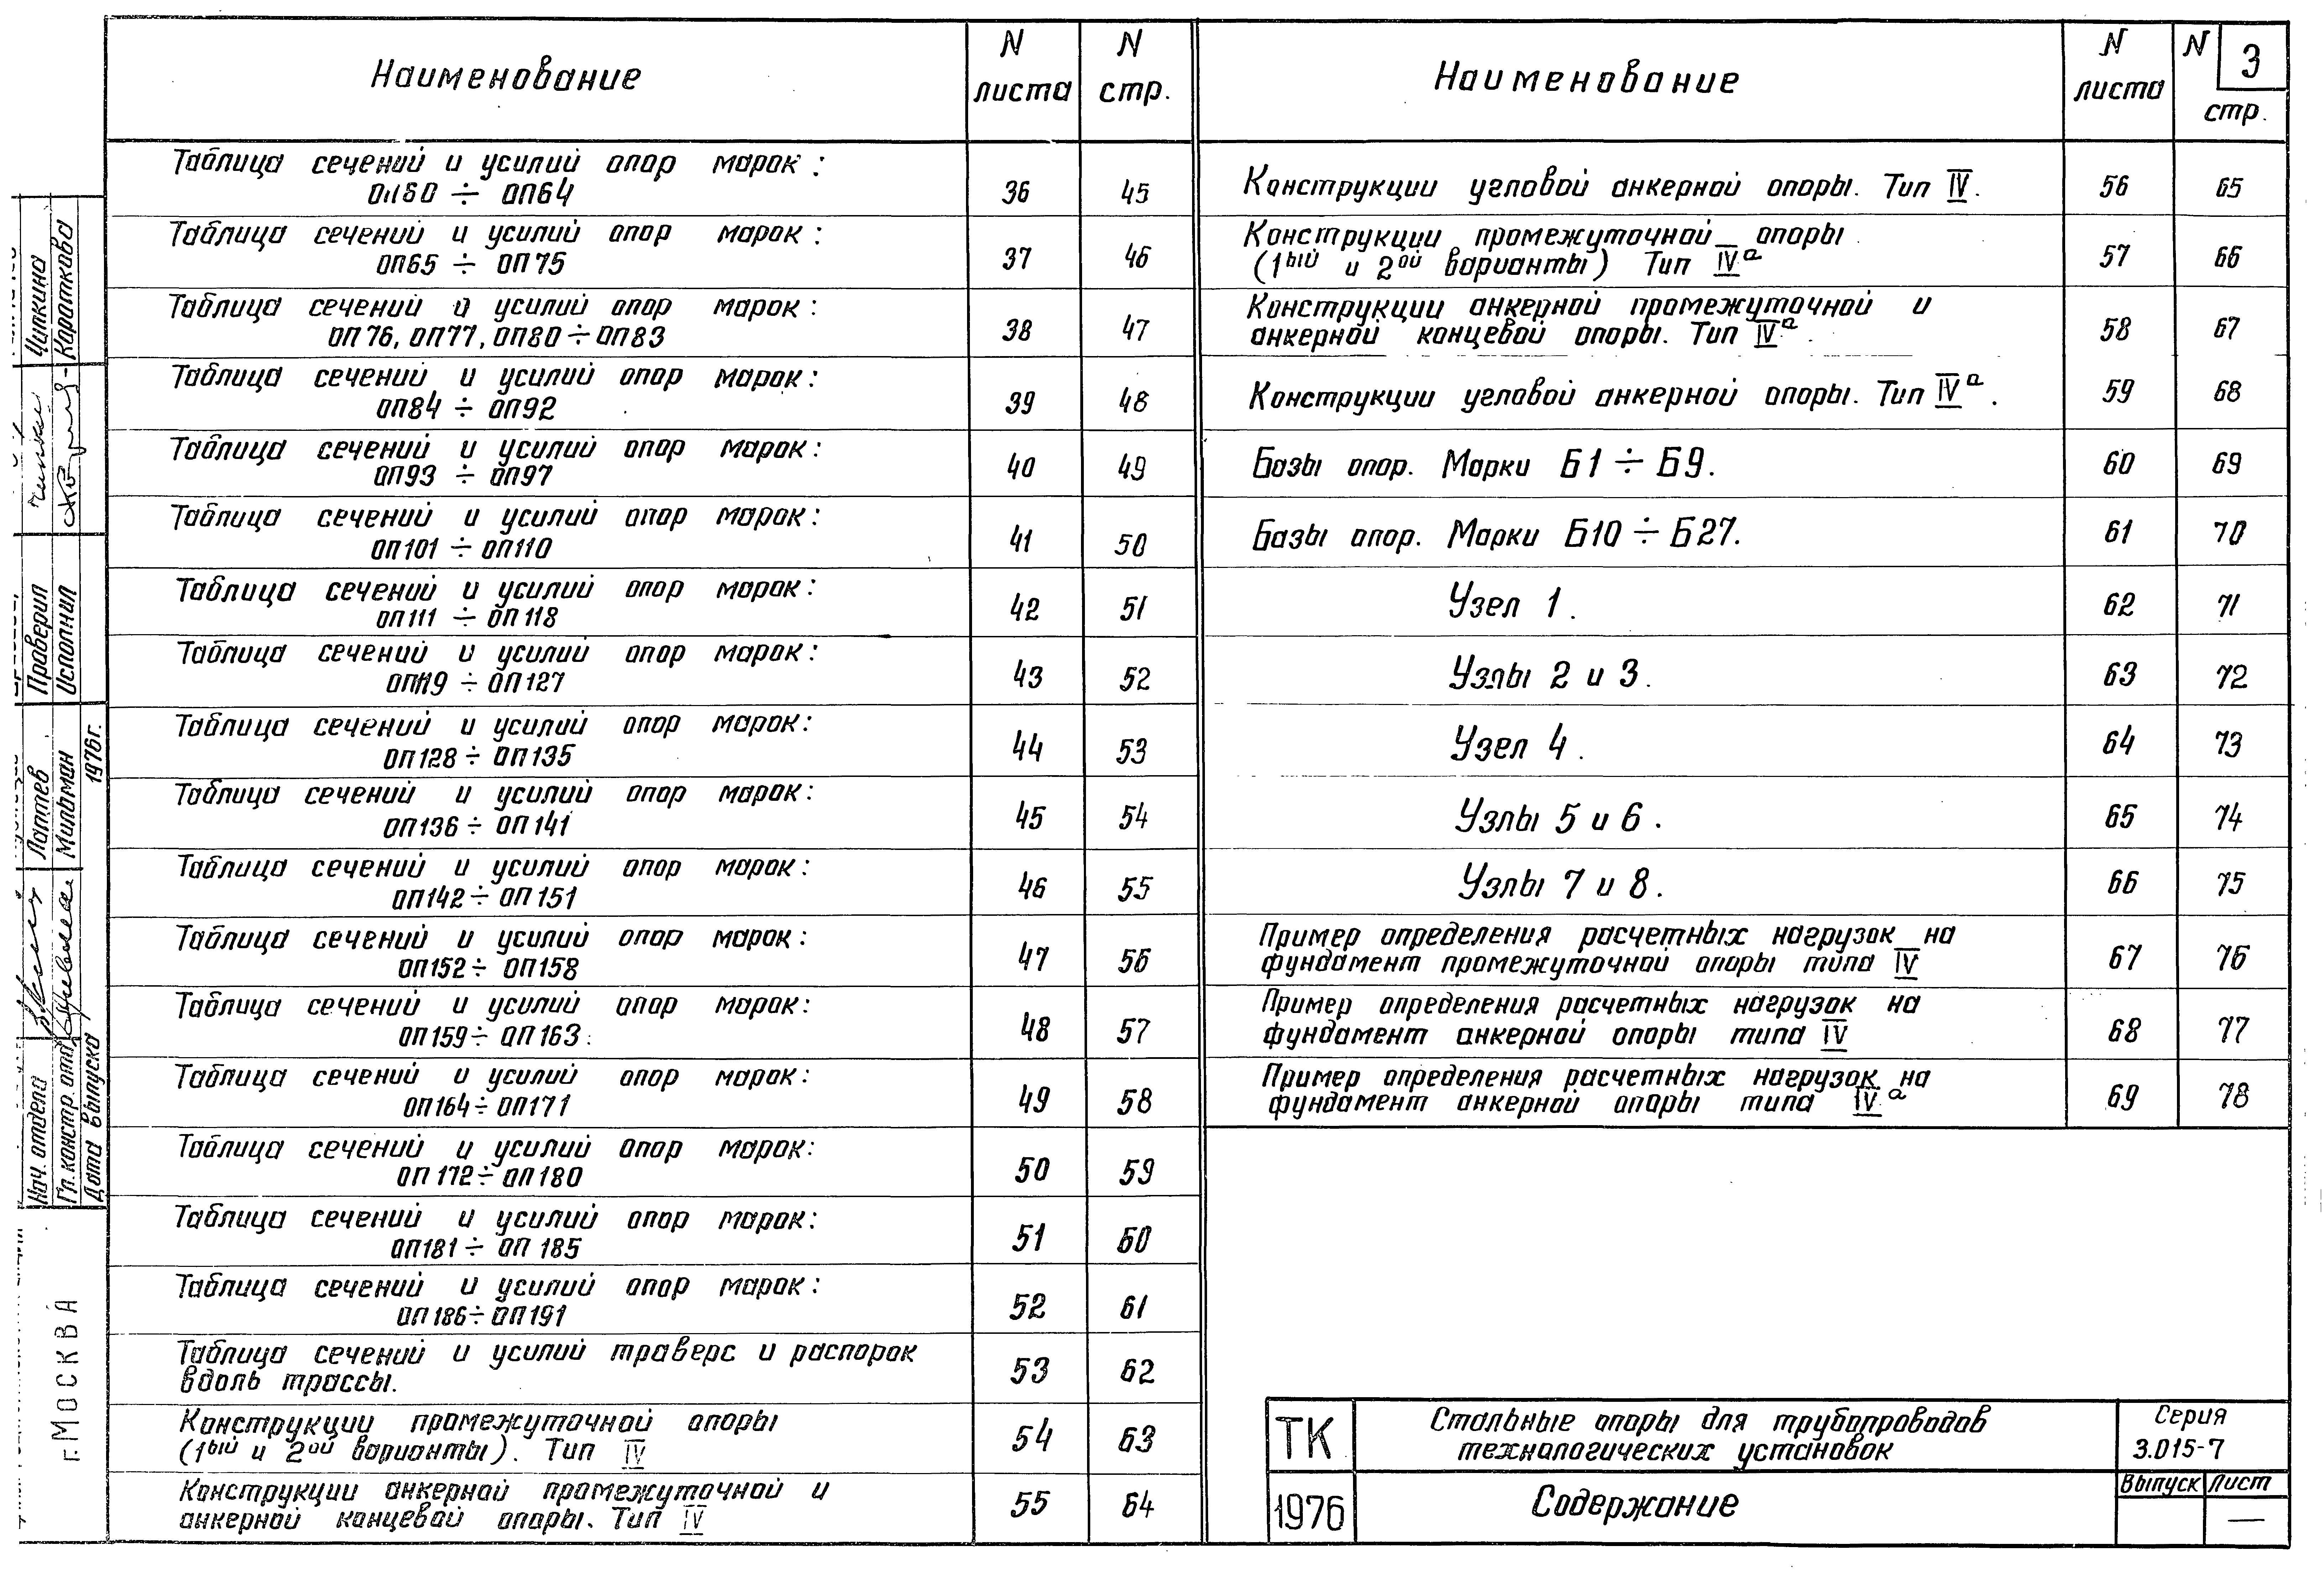 3
Наименование
N листа
N стр.
Таблица сечений и усилий опор марок:
ОП60 ÷ ОП64
36 45
Таблица сечений и усилий опор марок:
ОП65 ÷ ОП75
37 46
Таблица сечений и усилий опор марок:
ОП76, ОП77, ОП80÷ОП83
38 47
Таблица сечений и усилий опор марок:
ОП84 ÷ ОП92
39 48
Таблица сечений и усилий опор марок:
ОП93 ÷ ОП97
40 49
Таблица сечений и усилий опор марок:
ОП101 ÷ ОП110
41 50
Таблица сечений и усилий опор марок:
ОП111 ÷ ОП118
42 51
Таблица сечений и усилий опор марок:
ОП119 ÷ ОП127
43 52
Таблица сечений и усилий опор марок:
ОП128 ÷ ОП135
44 53
Таблица сечений и усилий опор марок:
ОП136 ÷ ОП141
45 54
Таблица сечений и усилий опор марок:
ОП142 ÷ ОП151
46 55
Таблица сечений и усилий опор марок:
ОП152 ÷ ОП158
47 56
Таблица сечений и усилий опор марок:
ОП159 ÷ ОП163
48 57
Таблица сечений и усилий опор марок:
ОП164 ÷ ОП171
49 58
Таблица сечений и усилий опор марок:
ОП172 ÷ ОП180
50 59
Таблица сечений и усилий опор марок:
ОП181 ÷ ОП185
51 60
Таблица сечений и усилий опор марок:
ОП186 ÷ ОП191
52 61
Таблица сечений и усилий траверс и распорок
вдоль трассы.
53 62
Конструкции промежуточной опоры
(1ый и 2ой варианты). Тип IV
54 63
Конструкции анкерной промежуточной и
анкерной концевой опоры. Тип IV
55 64
Наименование
N листа
N стр.
Конструкции угловой анкерной опоры. Тип IV.
56 65
Конструкции промежуточной опоры
(1ый и 2ой варианты) Тип IVа
57 66
Конструкции анкерной промежуточной и
анкерной концевой опоры. Тип IVа.
58 67
Конструкции угловой анкерной опоры. Тип IVа.
59 68
Базы опор. Марки Б1 ÷ Б9.
60 69
Базы опор. Марки Б10 ÷ Б27.
61 70
Узел 1.
62 71
Узлы 2 и 3.
63 72
Узел 4.
64 73
Узлы 5 и 6.
65 74
Узлы 7 и 8.
66 75
Пример определения расчетных нагрузок на
фундамент промежуточной опоры типа IV
67 76
Пример определения расчетных нагрузок на
фундамент анкерной опоры типа IV
68 77
Пример определения расчетных нагрузок на
фундамент анкерной опоры типа IVа
69 78
ТК
1976
Стальные опоры для трубопроводов
технологических установок
Содержание
Серия
3.015-7
Выпуск Лист
—
Чипкина
Короткова
Проверил
Исполнил
Лаптев
Мильман
1976г.
Нач. отдела
Гл. констр. отд.
Дата выпуска
г. МОСКВА